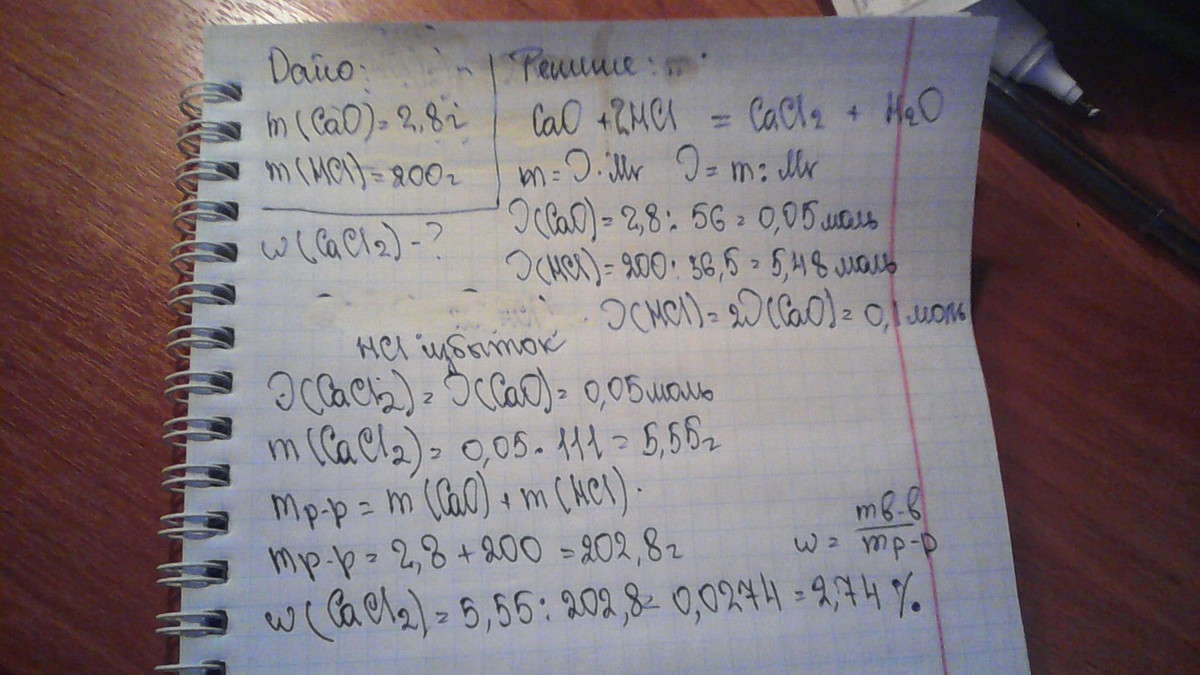 Дано:
m(CaO)=2,8г
m(HCl)=200г
w(CaCl2)-?
Решение:
CaO + 2HCl = CaCl2 + H2O
m=ν·Mr ν=m:Mr
ν(CaO)=2,8:56=0,05моль
ν(HCl)=200:36,5=5,48моль
ν(HCl)=2ν(CaO)=0,1моль
HCl избыток
ν(CaCl2)=ν(CaO)=0,05моль
m(CaCl2)=0,05·111=5,55г
mр-р=m(CaO)+m(HCl).
mр-р=2,8+200=202,8г
w=mв-в/mр-р
w(CaCl2)=5,55:202,8=0,0274=2,74%